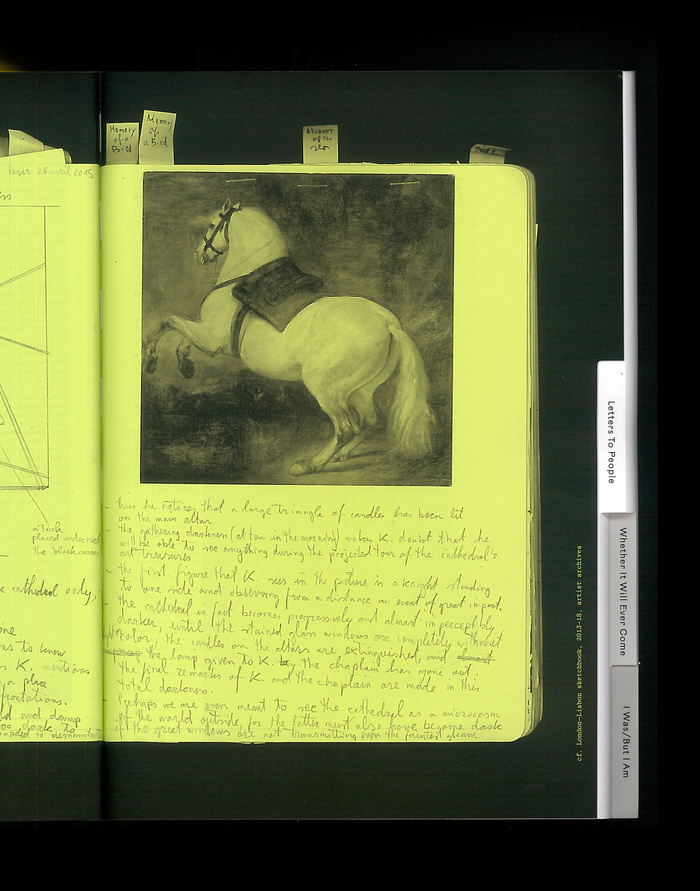 Memory
of a
Bird
Memory
of
a Bird
Memory
of the
sea
Paris 28 avril 2015
a Torch
placed underneath
the black canvas
cathedral only,
to know
K. mentions
a place
and damp
dark, to
- thus he notices that a large triangle of candles has been lit
on the main altar
- the gathering darkness (at ten in the morning) makes K. doubt that he
will be able to see anything during the projected tour of the cathedral's
art treasures
- the first figure that K. sees in the picture is a knight standing
to one side and observing from a distance an event of great import.
- the cathedral in fact becomes progressively and almost imperceptibly
darker, until the stained glass windows are completely without
color, the candles on the altars are extinguished, and
the lamp given to K. by the chaplain has gone out.
The final remarks of K. and the chaplain are made in this
total darkness.
- Perhaps we are even meant to see the cathedral as a microcosm
of the world outside, for the latter must also have become dark
if the great windows are not transmitting even the faintest gleam.
Letters To People
Whether It Will Ever Come
I Was/But I Am
cf. London–Lisbon sketchbook, 2013–18, artist archives